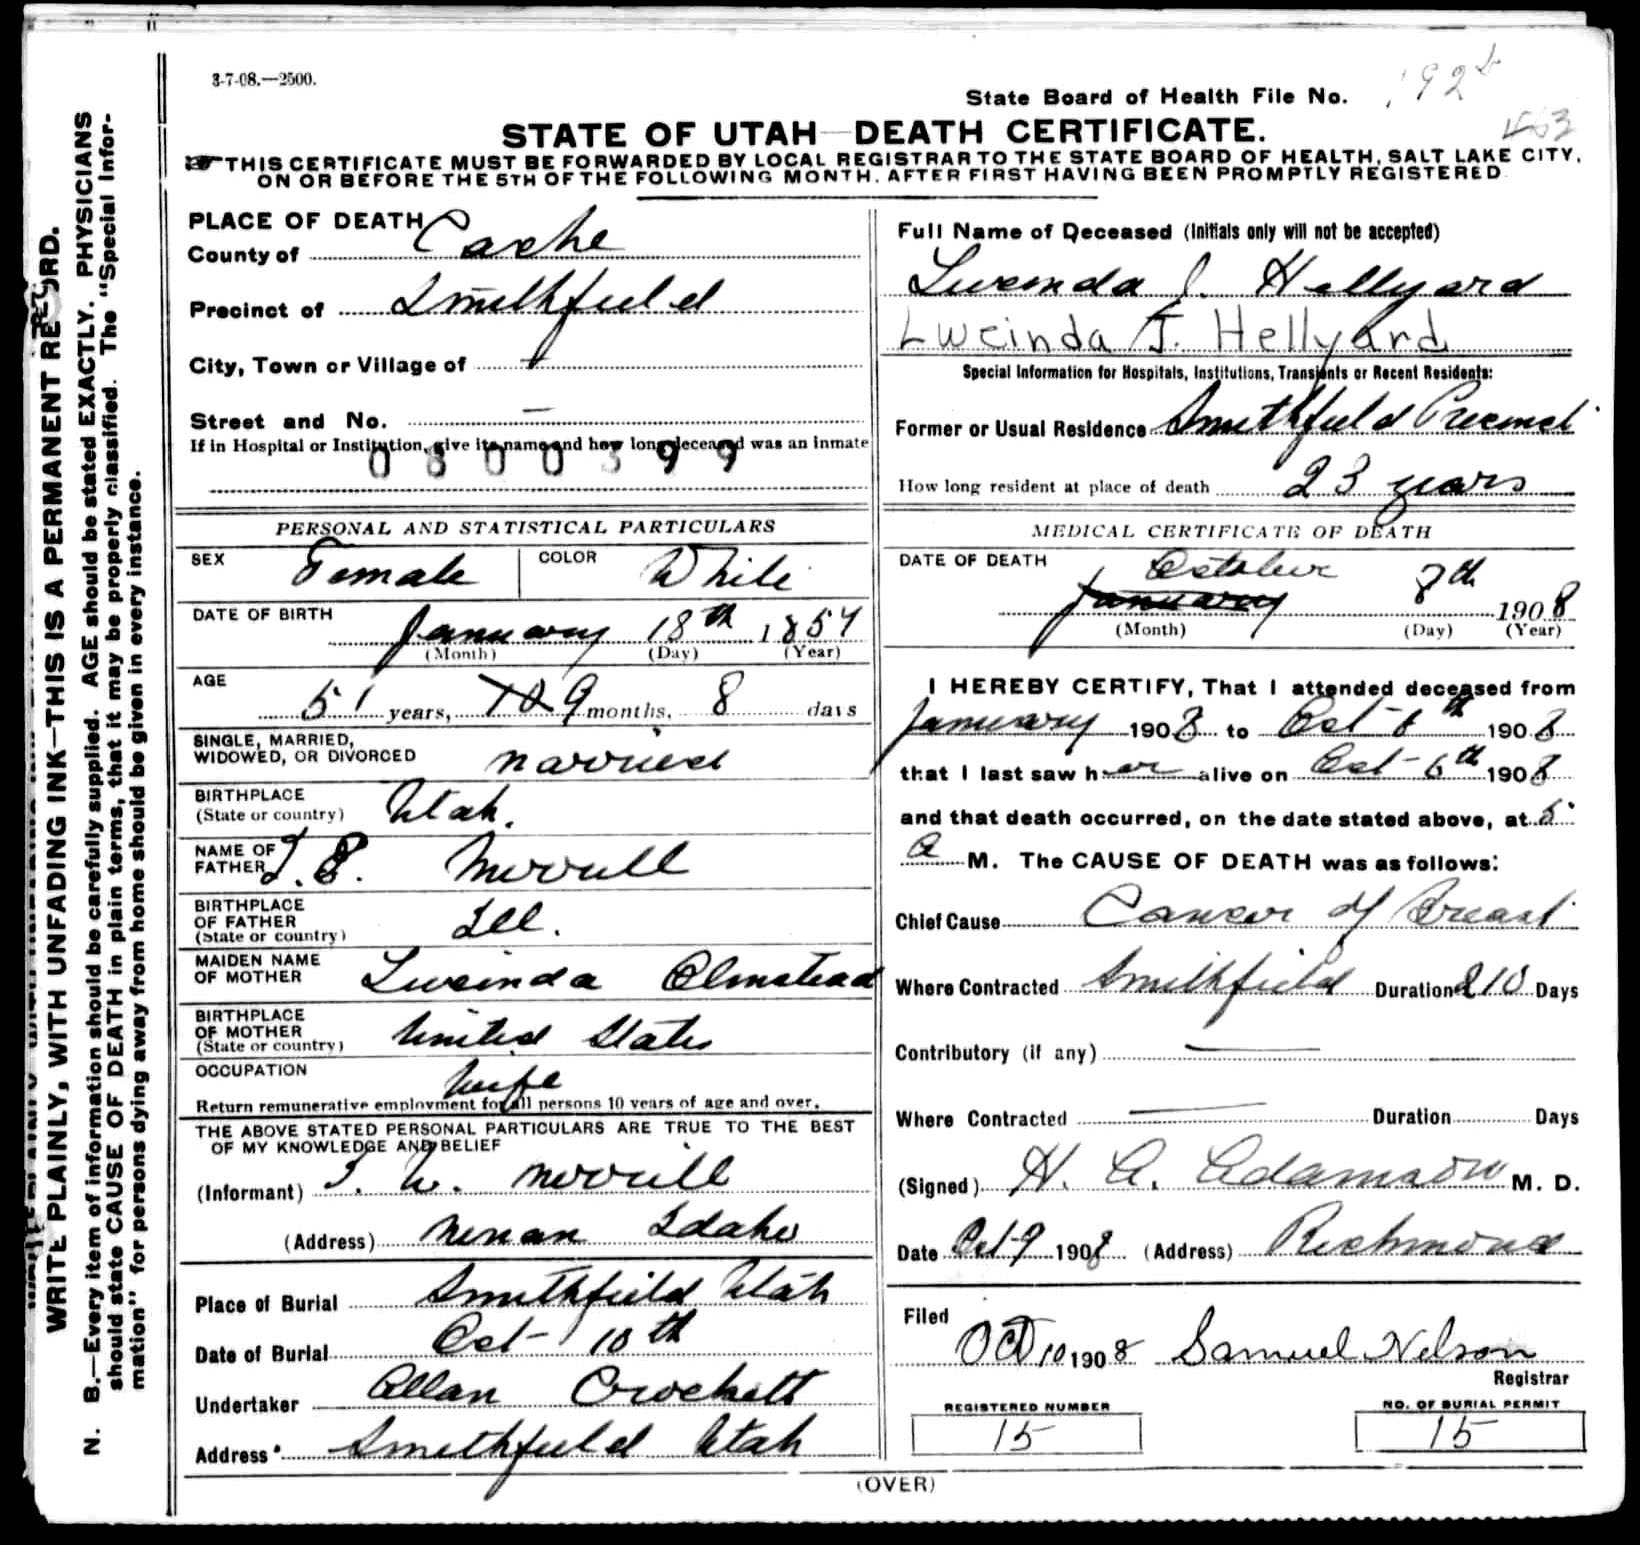 3-7-08.—2500.
State Board of Health File No.
STATE OF UTAH—DEATH CERTIFICATE.
THIS CERTIFICATE MUST BE FORWARDED BY LOCAL REGISTRAR TO THE STATE BOARD OF HEALTH, SALT LAKE CITY,
ON OR BEFORE THE 5TH OF THE FOLLOWING MONTH, AFTER FIRST HAVING BEEN PROMPTLY REGISTERED.
WRITE PLAINLY, WITH UNFADING INK—THIS IS A PERMANENT RECORD.
N. B.—Every item of information should be carefully supplied. AGE should be stated EXACTLY. PHYSICIANS
should state CAUSE OF DEATH in plain terms, that it may be properly classified. The "Special Infor-
mation" for persons dying away from home should be given in every instance.
PLACE OF DEATH
County of Cache
Precinct of Smithfield
City, Town or Village of
Street and No. —
If in Hospital or Institution, give its name and how long deceased was an inmate
0800399
PERSONAL AND STATISTICAL PARTICULARS
SEX Female COLOR White
DATE OF BIRTH
January 18th 1857
(Month) (Day) (Year)
AGE
51 years, 9 months, 8 days
SINGLE, MARRIED,
WIDOWED, OR DIVORCED married
BIRTHPLACE
(State or country) Utah.
NAME OF
FATHER Merrill
BIRTHPLACE
OF FATHER
(State or country) Ill.
MAIDEN NAME
OF MOTHER Lweinda Olmstead
BIRTHPLACE
OF MOTHER
(State or country) United States
OCCUPATION wife
Return remunerative employment for all persons 10 years of age and over.
THE ABOVE STATED PERSONAL PARTICULARS ARE TRUE TO THE BEST
OF MY KNOWLEDGE AND BELIEF
(Informant) W. Merrill
(Address) Menan Idaho
Place of Burial Smithfield Utah
Date of Burial Oct- 10th
Undertaker Allan Crockett
Address Smithfield Utah
Full Name of Deceased (Initials only will not be accepted)
Lweinda J. Hellyard
Lweinda J. Hellyard
Special Information for Hospitals, Institutions, Transients or Recent Residents:
Former or Usual Residence Smithfield Precinct
How long resident at place of death 23 years
MEDICAL CERTIFICATE OF DEATH
DATE OF DEATH October 8th
January 1908
(Month) (Day) (Year)
I HEREBY CERTIFY, That I attended deceased from
January 1908 to Oct-6th 1908
that I last saw her alive on Oct-6th 1908
and that death occurred, on the date stated above, at 5
a M. The CAUSE OF DEATH was as follows:
Chief Cause Cancer of Breast
Where Contracted Smithfield Duration 210 Days
Contributory (if any) —
Where Contracted — Duration Days
(Signed) H. A. Adamson M. D.
Date Oct-9 1908 (Address) Richmond
Filed
Oct 10 1908 Samuel Nelson
Registrar
REGISTERED NUMBER
15
NO. OF BURIAL PERMIT
15
(OVER)